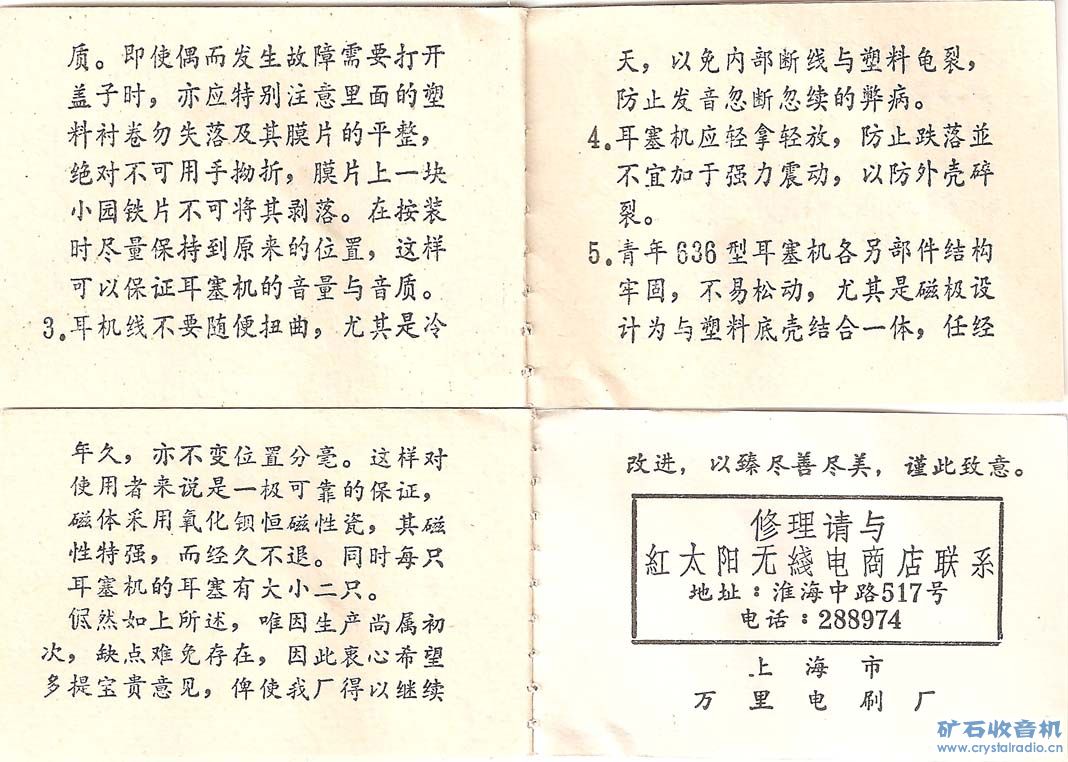 质。即使偶而发生故障需要打开
盖子时，亦应特别注意里面的塑
料衬卷勿失落及其膜片的平整，
绝对不可用手拗折，膜片上一块
小园铁片不可将其剥落。在按装
时尽量保持到原来的位置，这样
可以保证耳塞机的音量与音质。
3.耳机线不要随便扭曲，尤其是冷
天，以免内部断线与塑料龟裂，
防止发音忽断忽续的弊病。
4.耳塞机应轻拿轻放，防止跌落並
不宜加于强力震动，以防外壳碎
裂。
5.青年636型耳塞机各另部件结构
牢固，不易松动，尤其是磁极设
计为与塑料底壳结合一体，任经
年久，亦不变位置分毫。这样对
使用者来说是一极可靠的保证，
磁体采用氧化钡恒磁性瓷，其磁
性特强，而经久不退。同时每只
耳塞机的耳塞有大小二只。
然如上所述，唯因生产尚属初
次，缺点难免存在，因此衷心希望
多提宝贵意见，俾使我厂得以继续
改进，以臻尽善尽美，谨此致意。
修理请与
紅太阳无綫电商店联系
地址：淮海中路517号
电话：288974
上海市
万里电刷厂
矿石收音机
www.crystalradio.cn